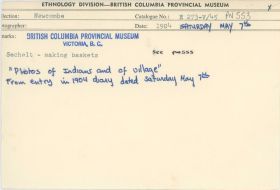 ETHNOLOGY DIVISION—BRITISH COLUMBIA PROVINCIAL MUSEUM
Collection: Newcombe Catalogue No. E 273-7/45 PN 553
Photographer: Date: 1904 SATURDAY MAY 7th
Remarks: BRITISH COLUMBIA PROVINCIAL MUSEUM
VICTORIA, B. C.
Sechelt - making baskets See PN555
"Photos of Indians and of village"
From entry in 1904 diary dated Saturday May 7th